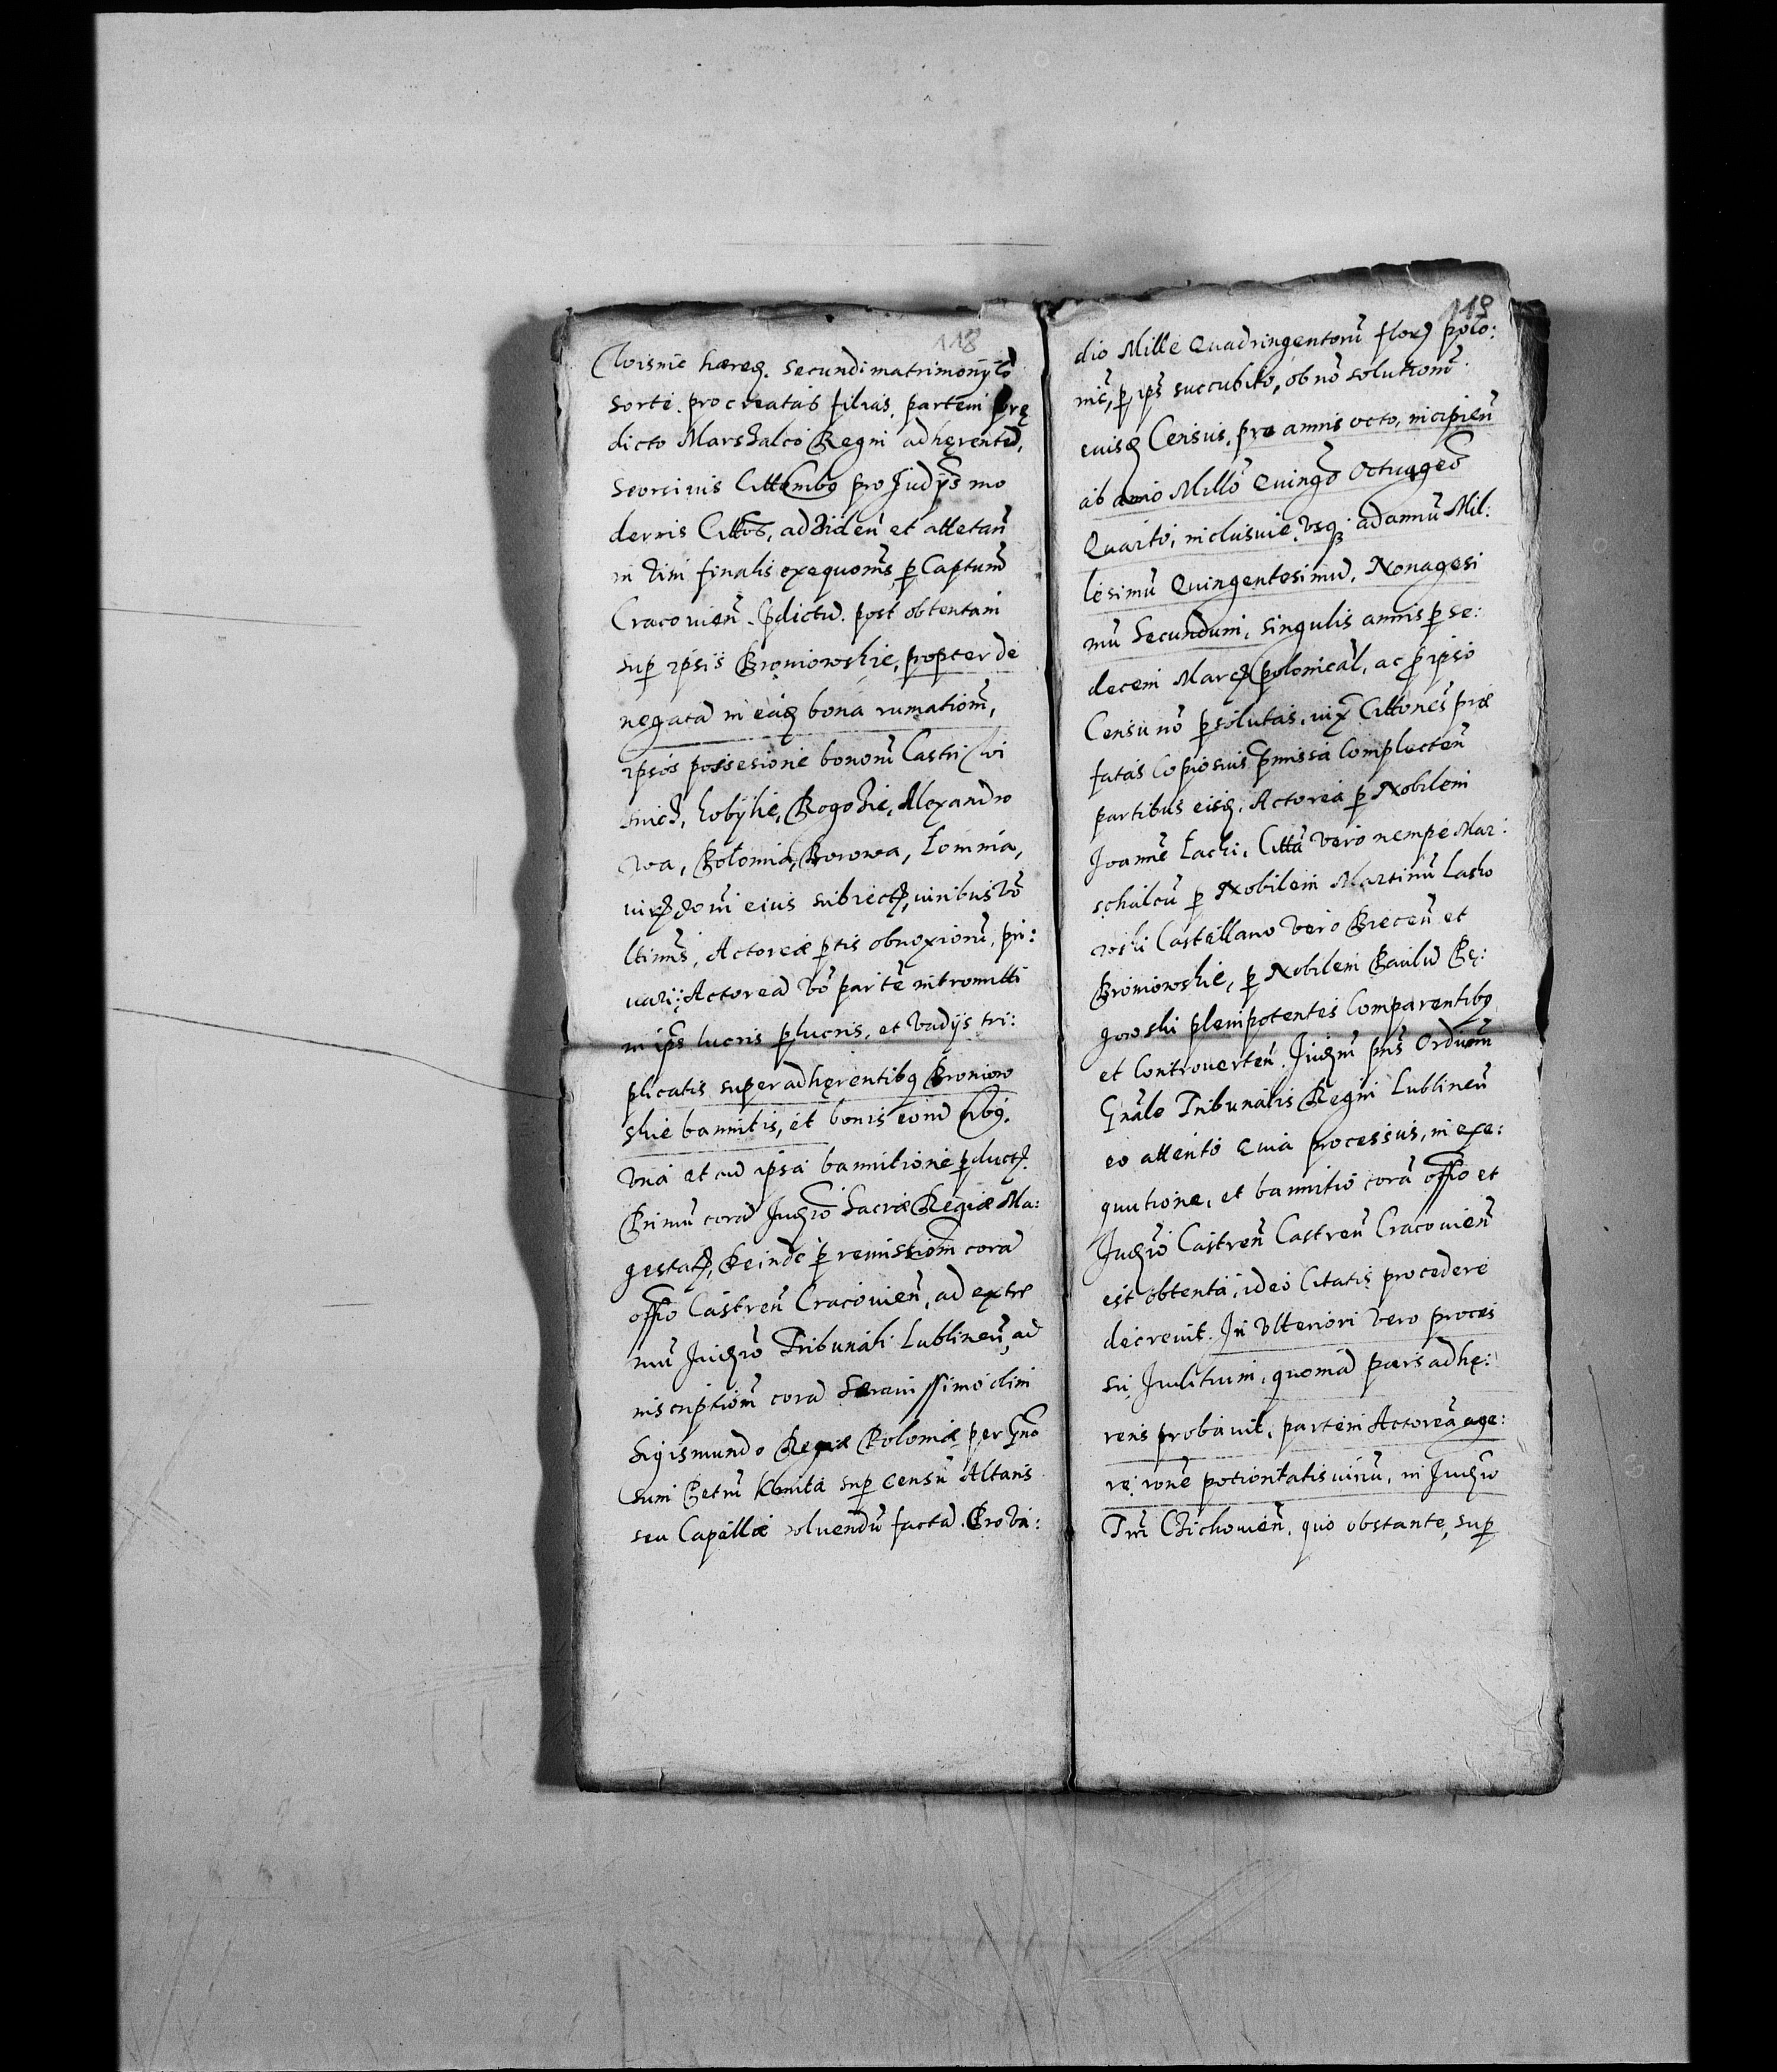 118
Wisnic hæređ. Secundi matrimonÿ co
sorte. procreatas filias, partem prę
dicto Marshalco Regni adhęrentē,
seorsiuis Cittembꝰ pro Judÿs mo
dernis Cittos, ad Viden̄ et attetan̄
in Vim finalis exequoīs, ꝑ Captum̄
Cracouien̄. p̄dictū. post obtentam
suꝑ ipsis Broniowskie, propter de
negatā in eađ bona rumatiom̄,
ipsos possesione bonorū Castri Wi
snicz, Kobÿlie, Rogozie, Alexandro
wa, Polomia, Borowa, Łomnia,
ltimīs, Actoreæ ꝑtis obnoxiorū, pri:
uari: Actoreā vō partē intromitti
in ip̄s lucris ꝑlucris, et Vadÿs tri:
plicatis super adhęrentibꝰ Broniow
skie bannitis, et bonis eorū
Vna et cū ipsa bannitione ꝑduct.
Primū corā Judiō Sacræ Regiæ Ma:
gestat, Deinde ꝑ remissiom̄ corā
offo Castren̄ Cracouien̄, ad extre
mū Judiō Tribunali Lublinen̄, ad
inscriptiom̄ corā Serenissimo olim
Sigismundo Rege Poloniæ per Gn̄o
sum Petrū Kmita suꝑ censū Altaris
seu Capellæ soluendū factā. Prova:
119
dio Mille Quadringentorū flor polo:
nic̄, ꝑ ip̄s succubito, ob nō solutiom̄
euisđ Census, pro annis octo, incipien̄
ab anno Millō Quingō Octuageō
Quarto, inclusiue, vsqꝫ ad annū Mil:
lesimū Quingentesimū, Nonagesi
mū Secundum, singulis annis ꝑ se:
decem Marc polonical, ac ꝓ ipso
Censu nō ꝑsolutas. iux Cittones præ
fatas copiosius p̄missa complecten̄
partibus eisđ. Actorea ꝑ Nobilem
Joannē Łacki. Citta vero nempe Mar:
schalcū ꝑ Nobilem Martinū Lasko
wski Castellano vero Biecen̄ et
Broniowskie, ꝑ Nobilem Paulū Bę:
gowski plenipotentes Comparentibꝰ
et Controuerten̄. Judm̄ pn̄s Ordinm̄
Gn̄ale Tribunalis Regni Lublinen̄
eo attento quia processus, in exe:
qutione, et bannitio corā offo et
Judiō Castren̄ Castren̄ Cracouien̄
est obtenta, ideo Citatis procedere
decreuit. In Vlteriori vero proces
su Juditium, quoniā pars adhę:
rens probauit, partem Actoreā age:
re, rone potioritatis uiriū, in Judiō
Trrī Czichouien̄. quo obstante, suꝑ